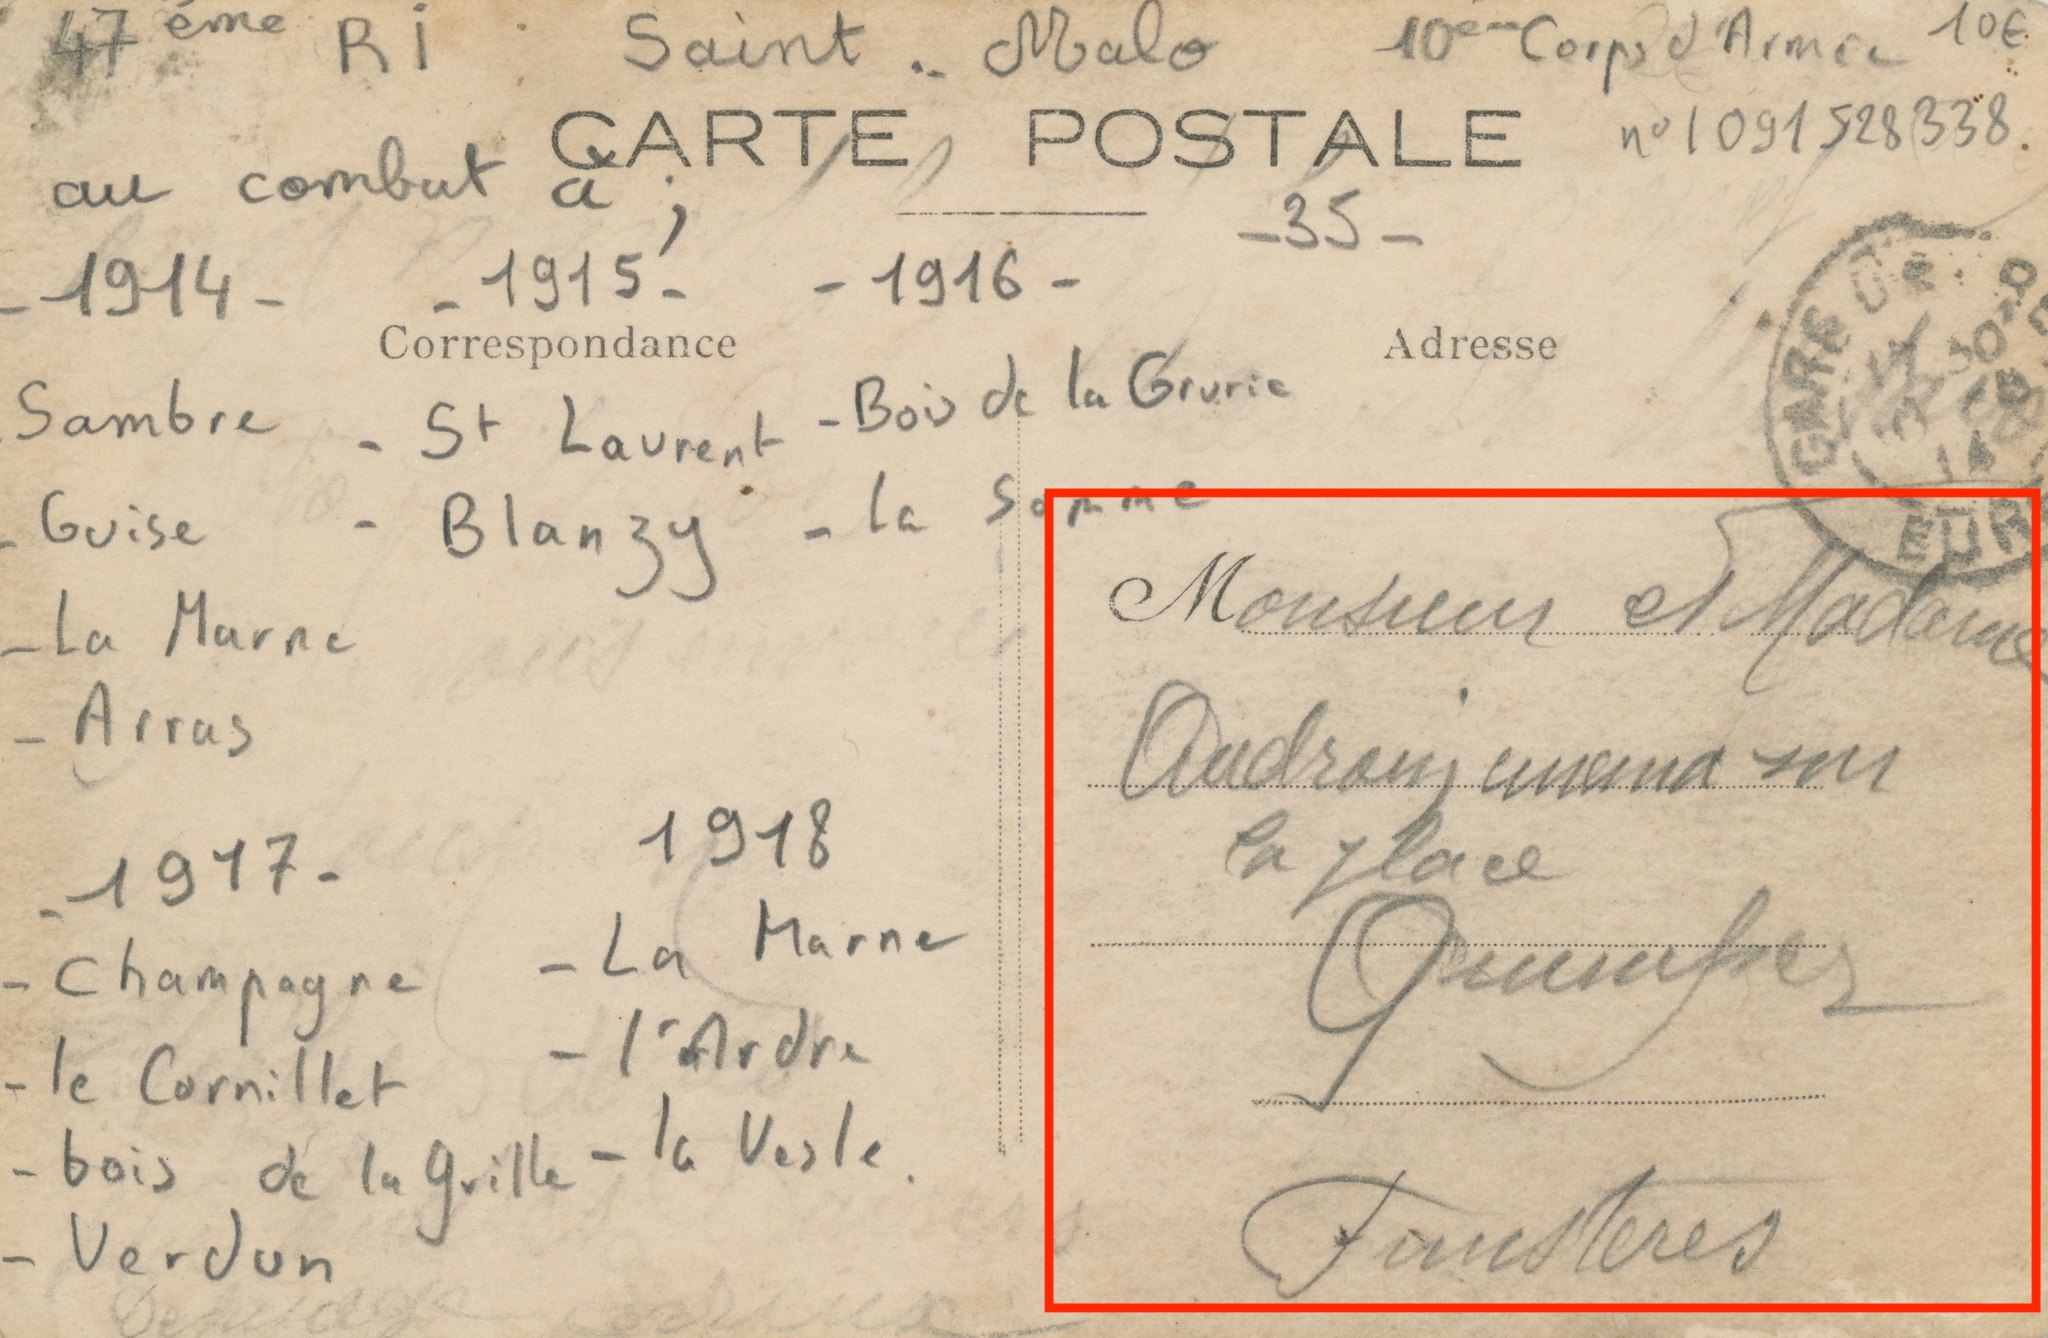 47ème RI Saint-Malo 10ème Corps d'Armée 10€
n° 1091528338
CARTE POSTALE
au combat à ;
-35-
-1914- -1915- -1916-
Correspondance
Adresse
- Sambre
- Guise
- La Marne
- Arras
- St Laurent
- Blanzy
- Bois de la Grurie
- la Somme
-1917-
- Champagne
- le Cornillet
- bois de la grille
- Verdun
1918
- La Marne
- l'Ardre
- la Vesle.
GARE DE
EURE
Monsieur et Madame
sur
la place
Quimper
Finisteres